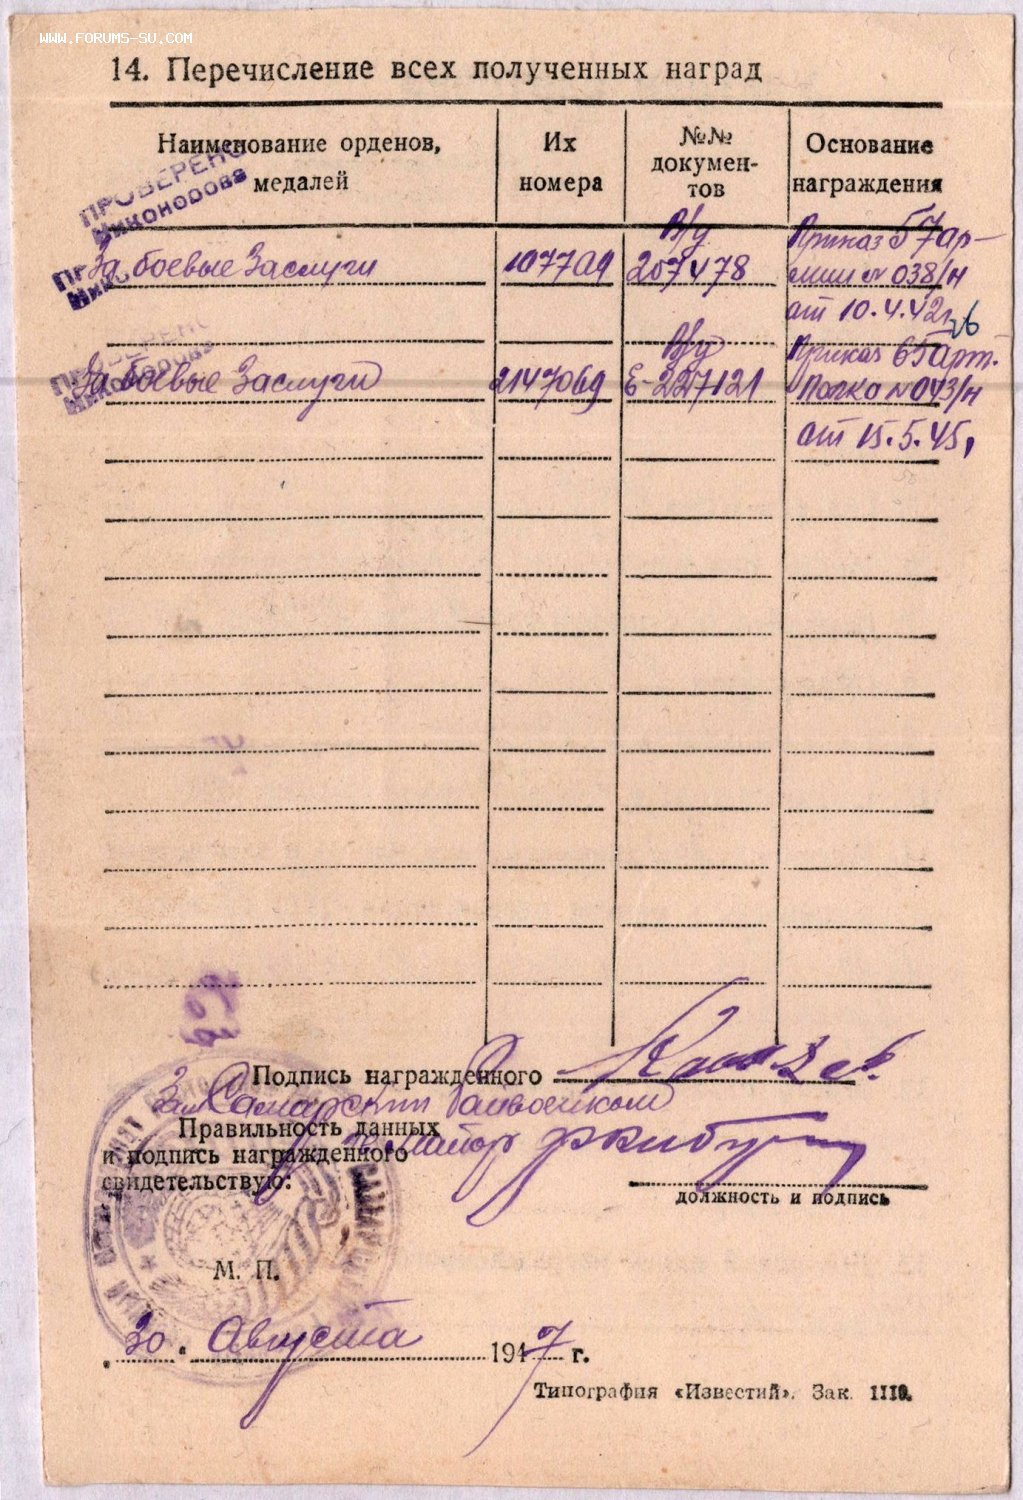 WWW.FORUMS-SU.COM
14. Перечисление всех полученных наград
Наименование орденов, медалей
Их номера
№№ докумен-тов
Основание награждения
ПРОВЕРЕНО
Никонорова
За боевые Заслуги
107709
В/у
207478
Приказ 57 ар-
мии № 038/н
от 10.4.42г
ПРОВЕРЕНО
Никонорова
За боевые Заслуги
2147069
В/у
Е-227121
Приказ 65 арт.
Полка № 043/н
от 15.5.45г
Подпись награжденного
Зам Самарский Райвоенком
Правильность данных
и подпись награжденного
свидетельствую:
Майор
должность и подпись
М. П.
„30" Августа 1947 г.
Типография «Известий». Зак. 1110.